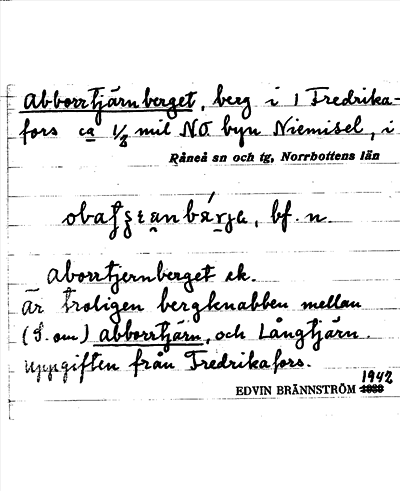 Abborrtjärnberget, berg i 1 Fredrika-
fors ca 1/8 mil NO byn Niemisel, i
Råneå sn och tg, Norrbottens län
bf. n.
Aborrtjernberget ek.
är troligen bergknabben mellan
(S. om) Abborrtjärn, och Långtjärn.
Uppgiften från Fredrikafors.
1942
EDVIN BRÄNNSTRÖM 1939